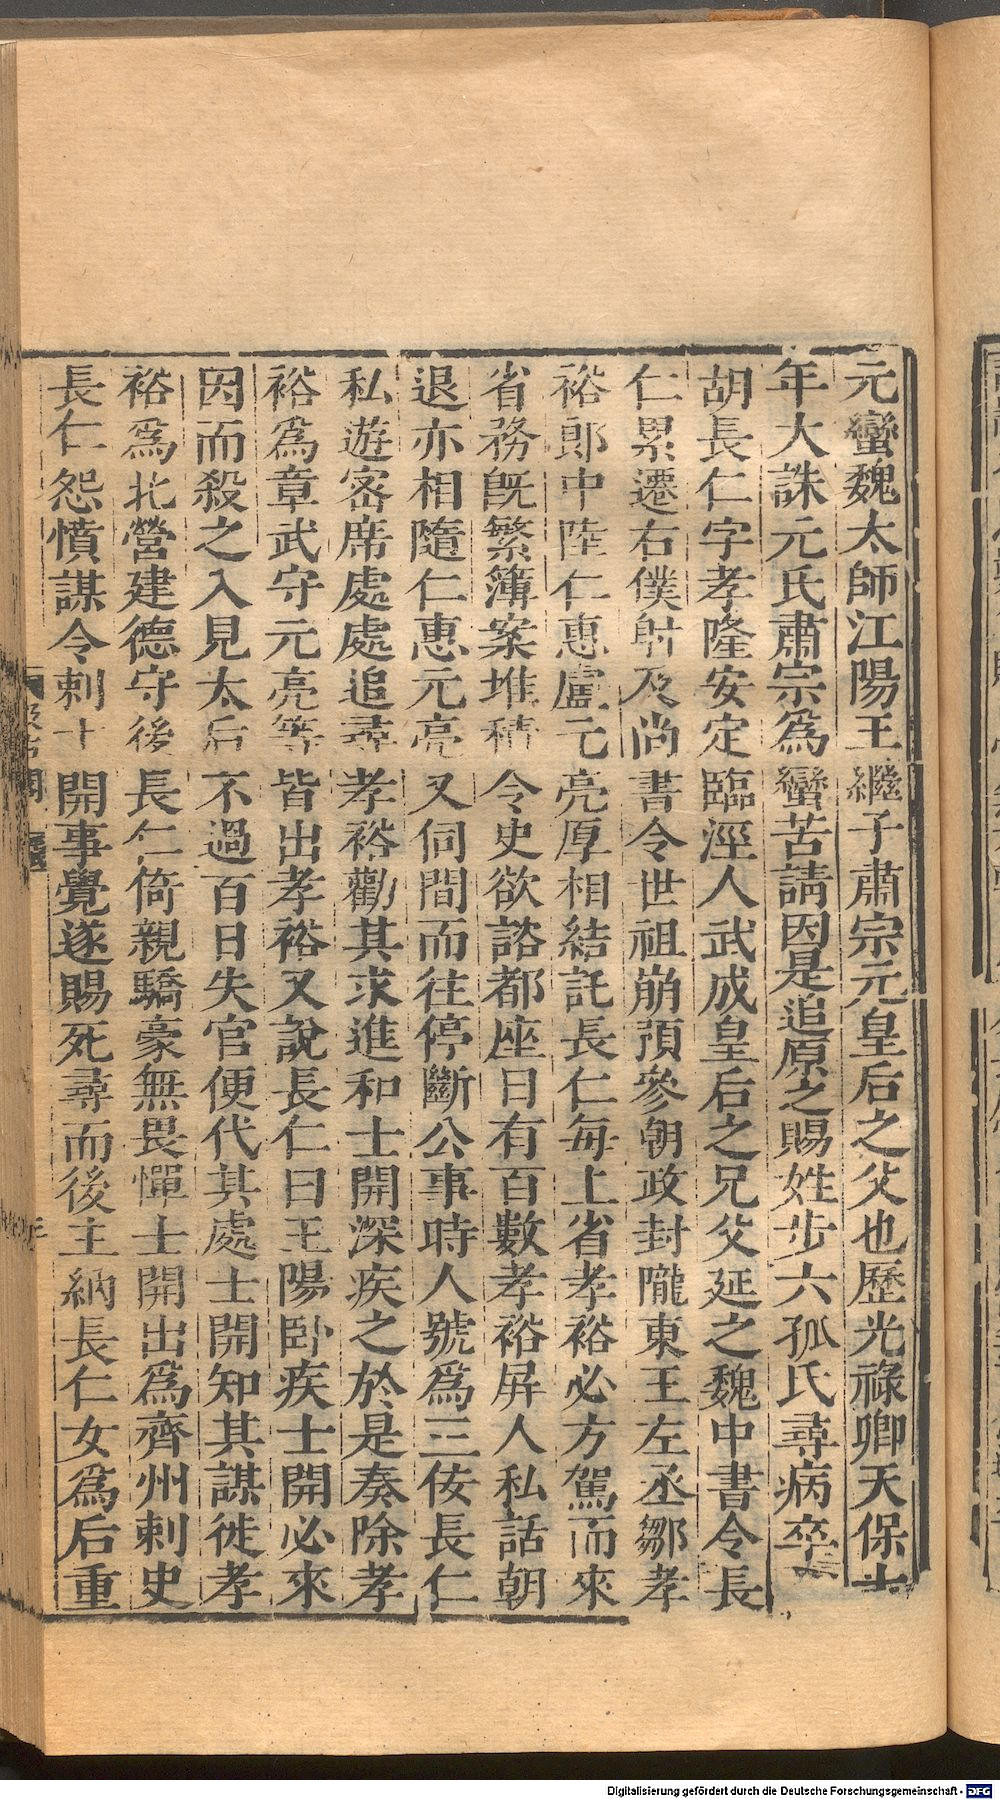 元蠻魏太師江陽王繼子肅宗元皇后之父也歷光祿卿天保十
年大誅元氏肅宗為蠻苦請因是追原之賜姓步六孤氏尋病卒
胡長仁字孝隆安定臨涇人武成皇后之兄父延之魏中書令長
仁累遷右僕射及尚書令世祖崩預參朝政封隴東王左丞鄒孝
裕郎中陸仁惠盧元亮厚相結託長仁每上省孝裕必方駕而來
省務既繁簿案堆積令史欲諮都座日有百數孝裕屏人私話朝
退亦相隨仁惠元亮又伺間而往停斷公事時人號為三佞長仁
私遊密席處處追尋孝裕勸其求進和士開深疾之於是奏除孝
裕為章武守元亮等皆出孝裕又說長仁曰王陽臥疾士開必來
因而殺之入見太后不過百日失官便代其處士開知其謀徙孝
裕為北營建德守後長仁倚親驕豪無畏憚士開出為齊州刺史
長仁怨憤謀令刺士開事覺遂賜死尋而後主納長仁女為后重
Digitalisierung gefördert durch die Deutsche Forschungsgemeinschaft - DFG